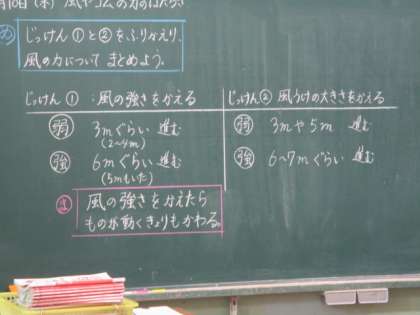 月10日(木) 風やゴムの力のはたらき
め じっけん①と②をふりかえり、
風の力について まとめよう。
じっけん① : 風の強さをかえる
弱 3mぐらい 進む
(2~4m)
強 6mぐらい 進む
(5mもいた)
じっけん② 風うけの大きさをかえる
弱 3mや5m 進む
強 6~7mぐらい 進む
ま 風の強さをかえたら
ものが動くきょりもかわる。